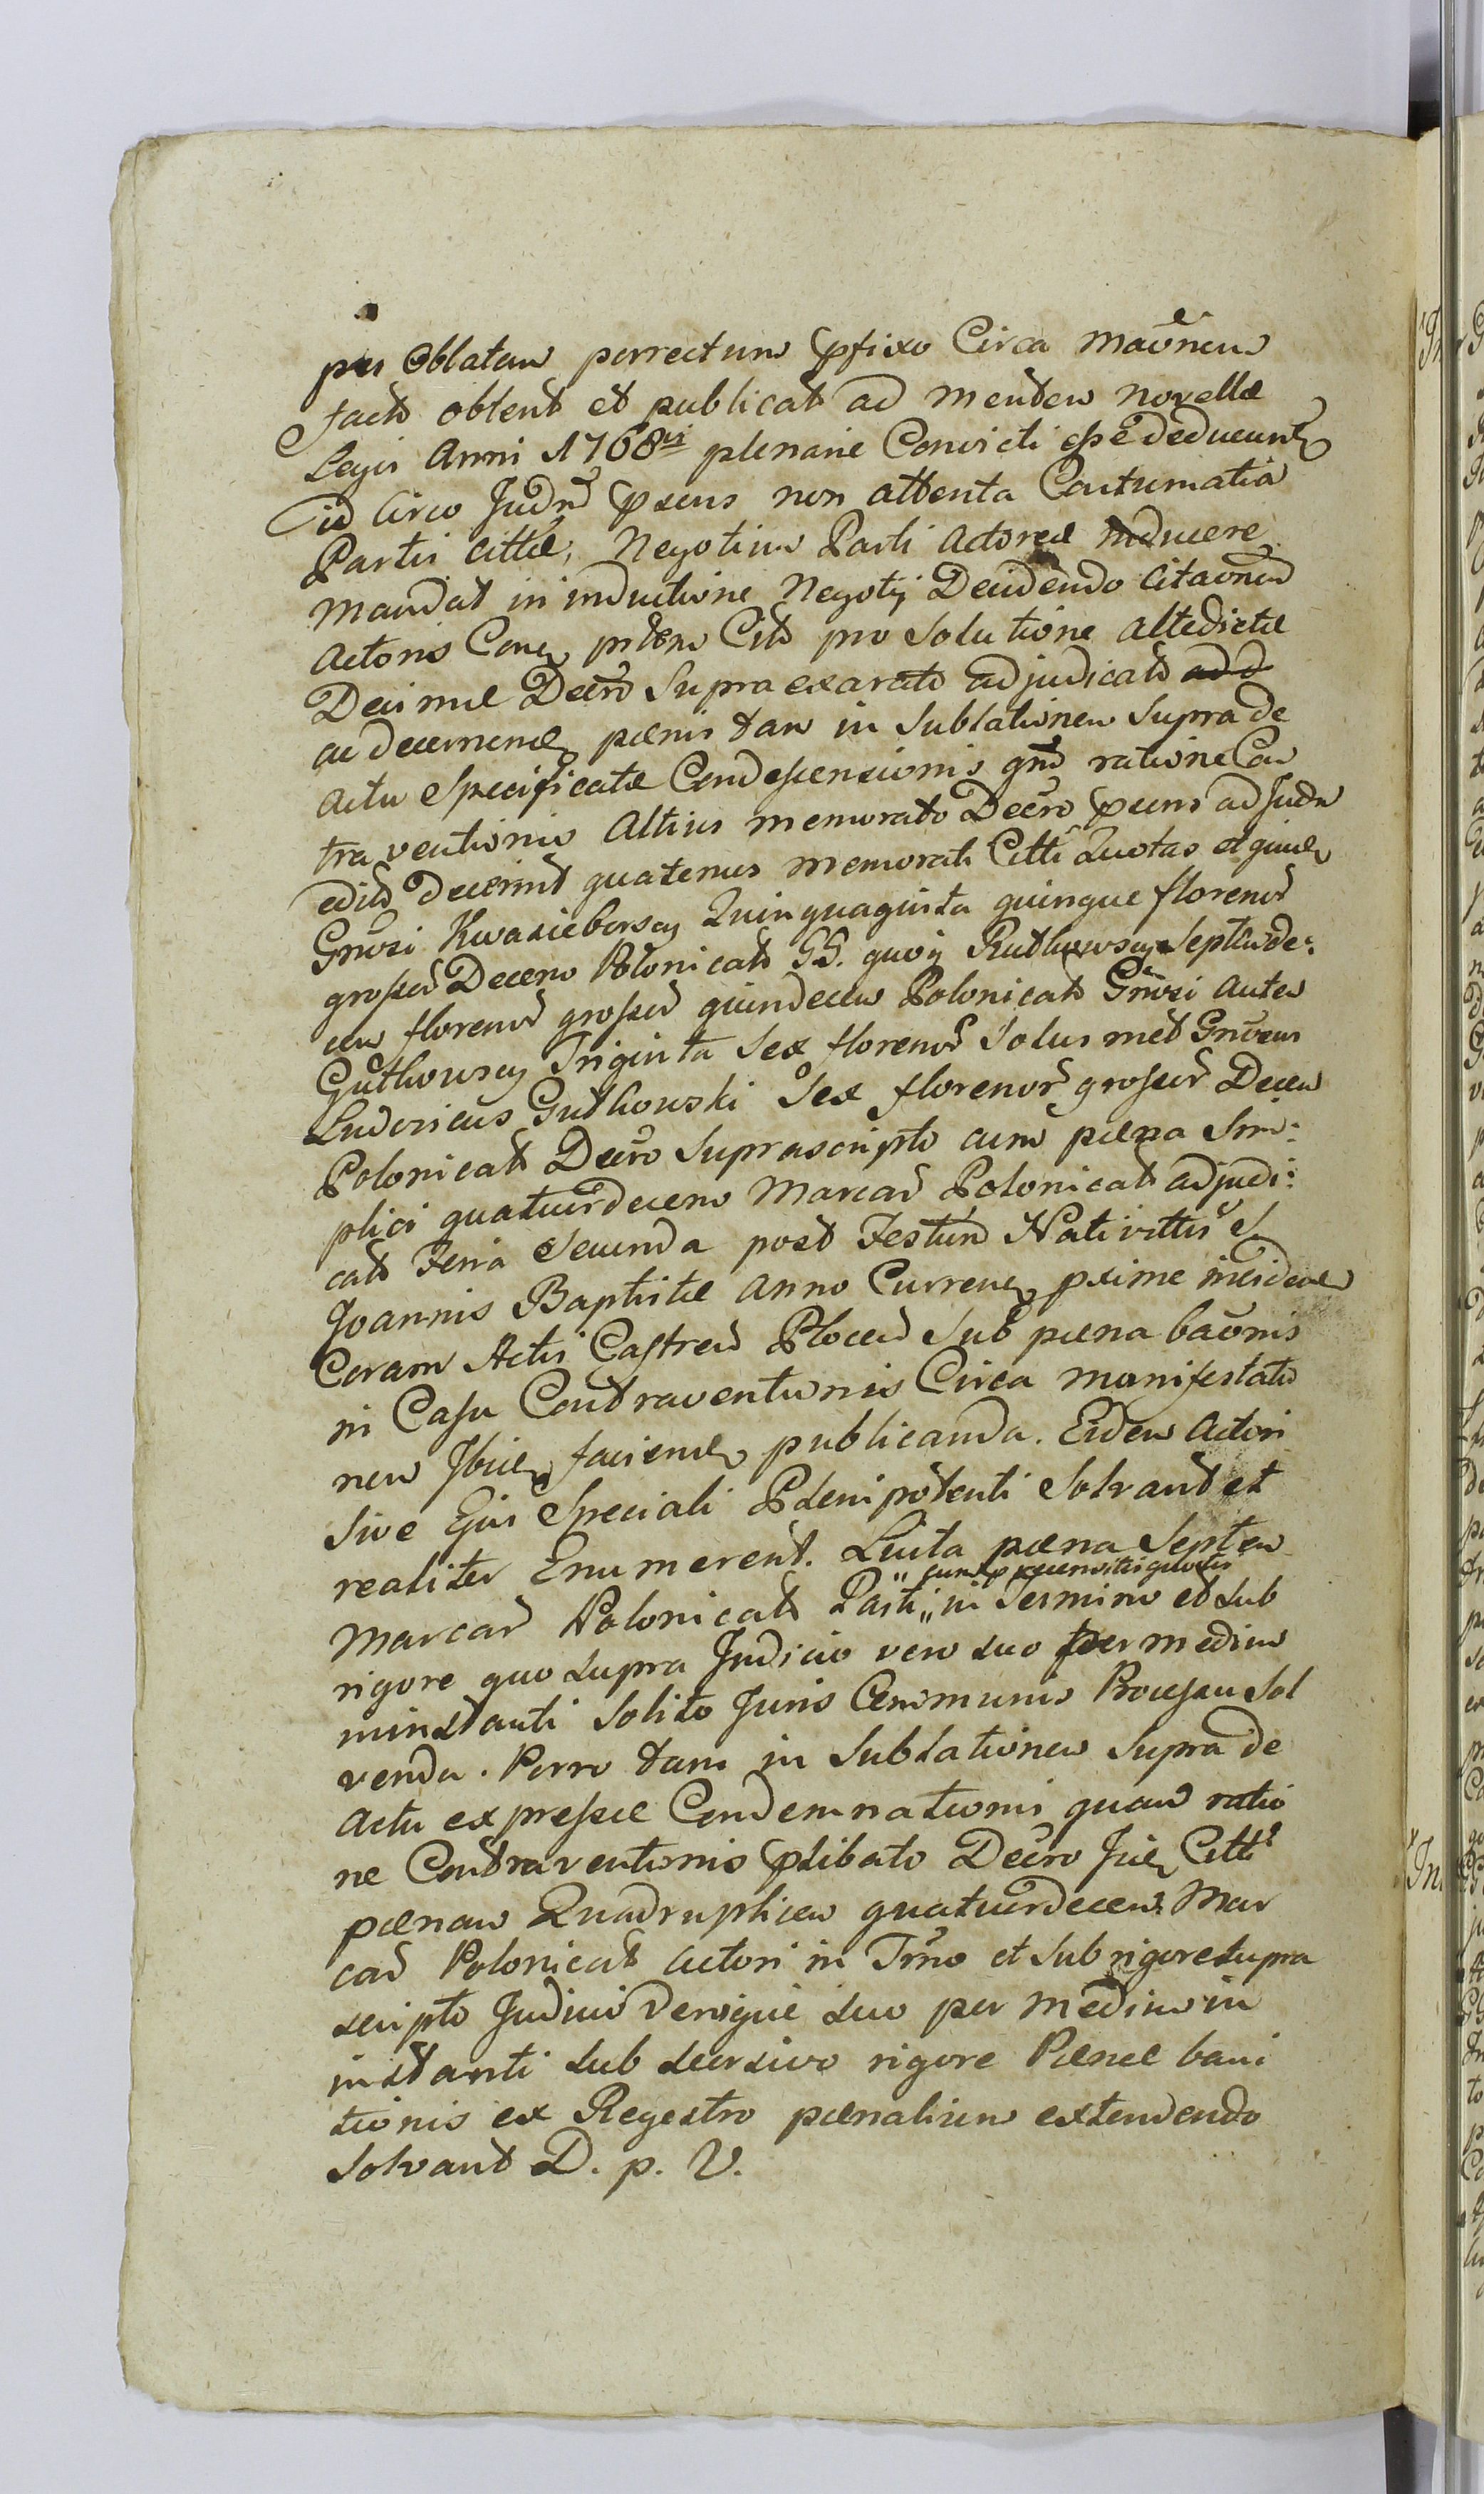 per Oblatam porrectum pfixo Circa Maōnem
facto obtent et publicat ad mentem novellæ
Legis Anni 1768vi plenarie Convicti esse deducunt
id circo Judm pxens non attenta Contumatia
Partis Cittæ, Negotium Parti Actoreæ inducere
mandat in inductione Negotij Decidendo Citaōnem
Actoris Cong pttem Citt pro Solutione altedictæ
Decimæ Decro Supra exarato adjudicato
ac decernend pænis tam in Sublationem Supra de
actu Specificatæ Condescensionis qm ratione Con
traventionis Altius memorato Decro pxens ad Judm
edito decernit quatenus memorati Citti Quotas et quid
Grosi Kwasieborscy Quinquaginta quinque florenor
grosser Decem Polonicat GG. quoq Rutkowscy Septende:
cim florenor grosser quindecim Polonicat Grosi autem
Gutkowscy Triginta Sex florenor Solus met Grosus
Ludovicus Gutkowski Sex florenor grosser Decem
Polonicat Decro Suprascripto cum pæna Sim:
plici quatuordecem Marcar Polonicat adjudi:
cat Feria Secunda post Festum Nativittis S.
Joannis Baptistæ Anno Curren pxime inciden
Coram Actis Castren Plocen Sub pæna baōnis
in Casu Contraventionis Circa manifestatio
nem Ibid faciend publicanda. Eidem Actori
Sive Ejus Speciali Plenipotenti Solvant et
realiter Enumerent. Luita pæna Septem
Marcar Polonicat Parti „ in Termino et Sub
rigore quo supra Judicio vero suo per medium
minstanti Solito Juris Communis Processu Sol
venda. Porro tam in Sublationem Supra de
actu expressæ Condemnationis quam ratio
ne Contraventionis plibato Decro Jud Citti
pænam Quadruplicem quatuordecem Mar
car Polonicat Actori in Trno et Sub rigore supra
scripto Judicio denique suo per medium in
instanti sub sucsivo rigore Pænæ bani
tionis ex Regestro pænalium extendendo
Solvant D. p. V.